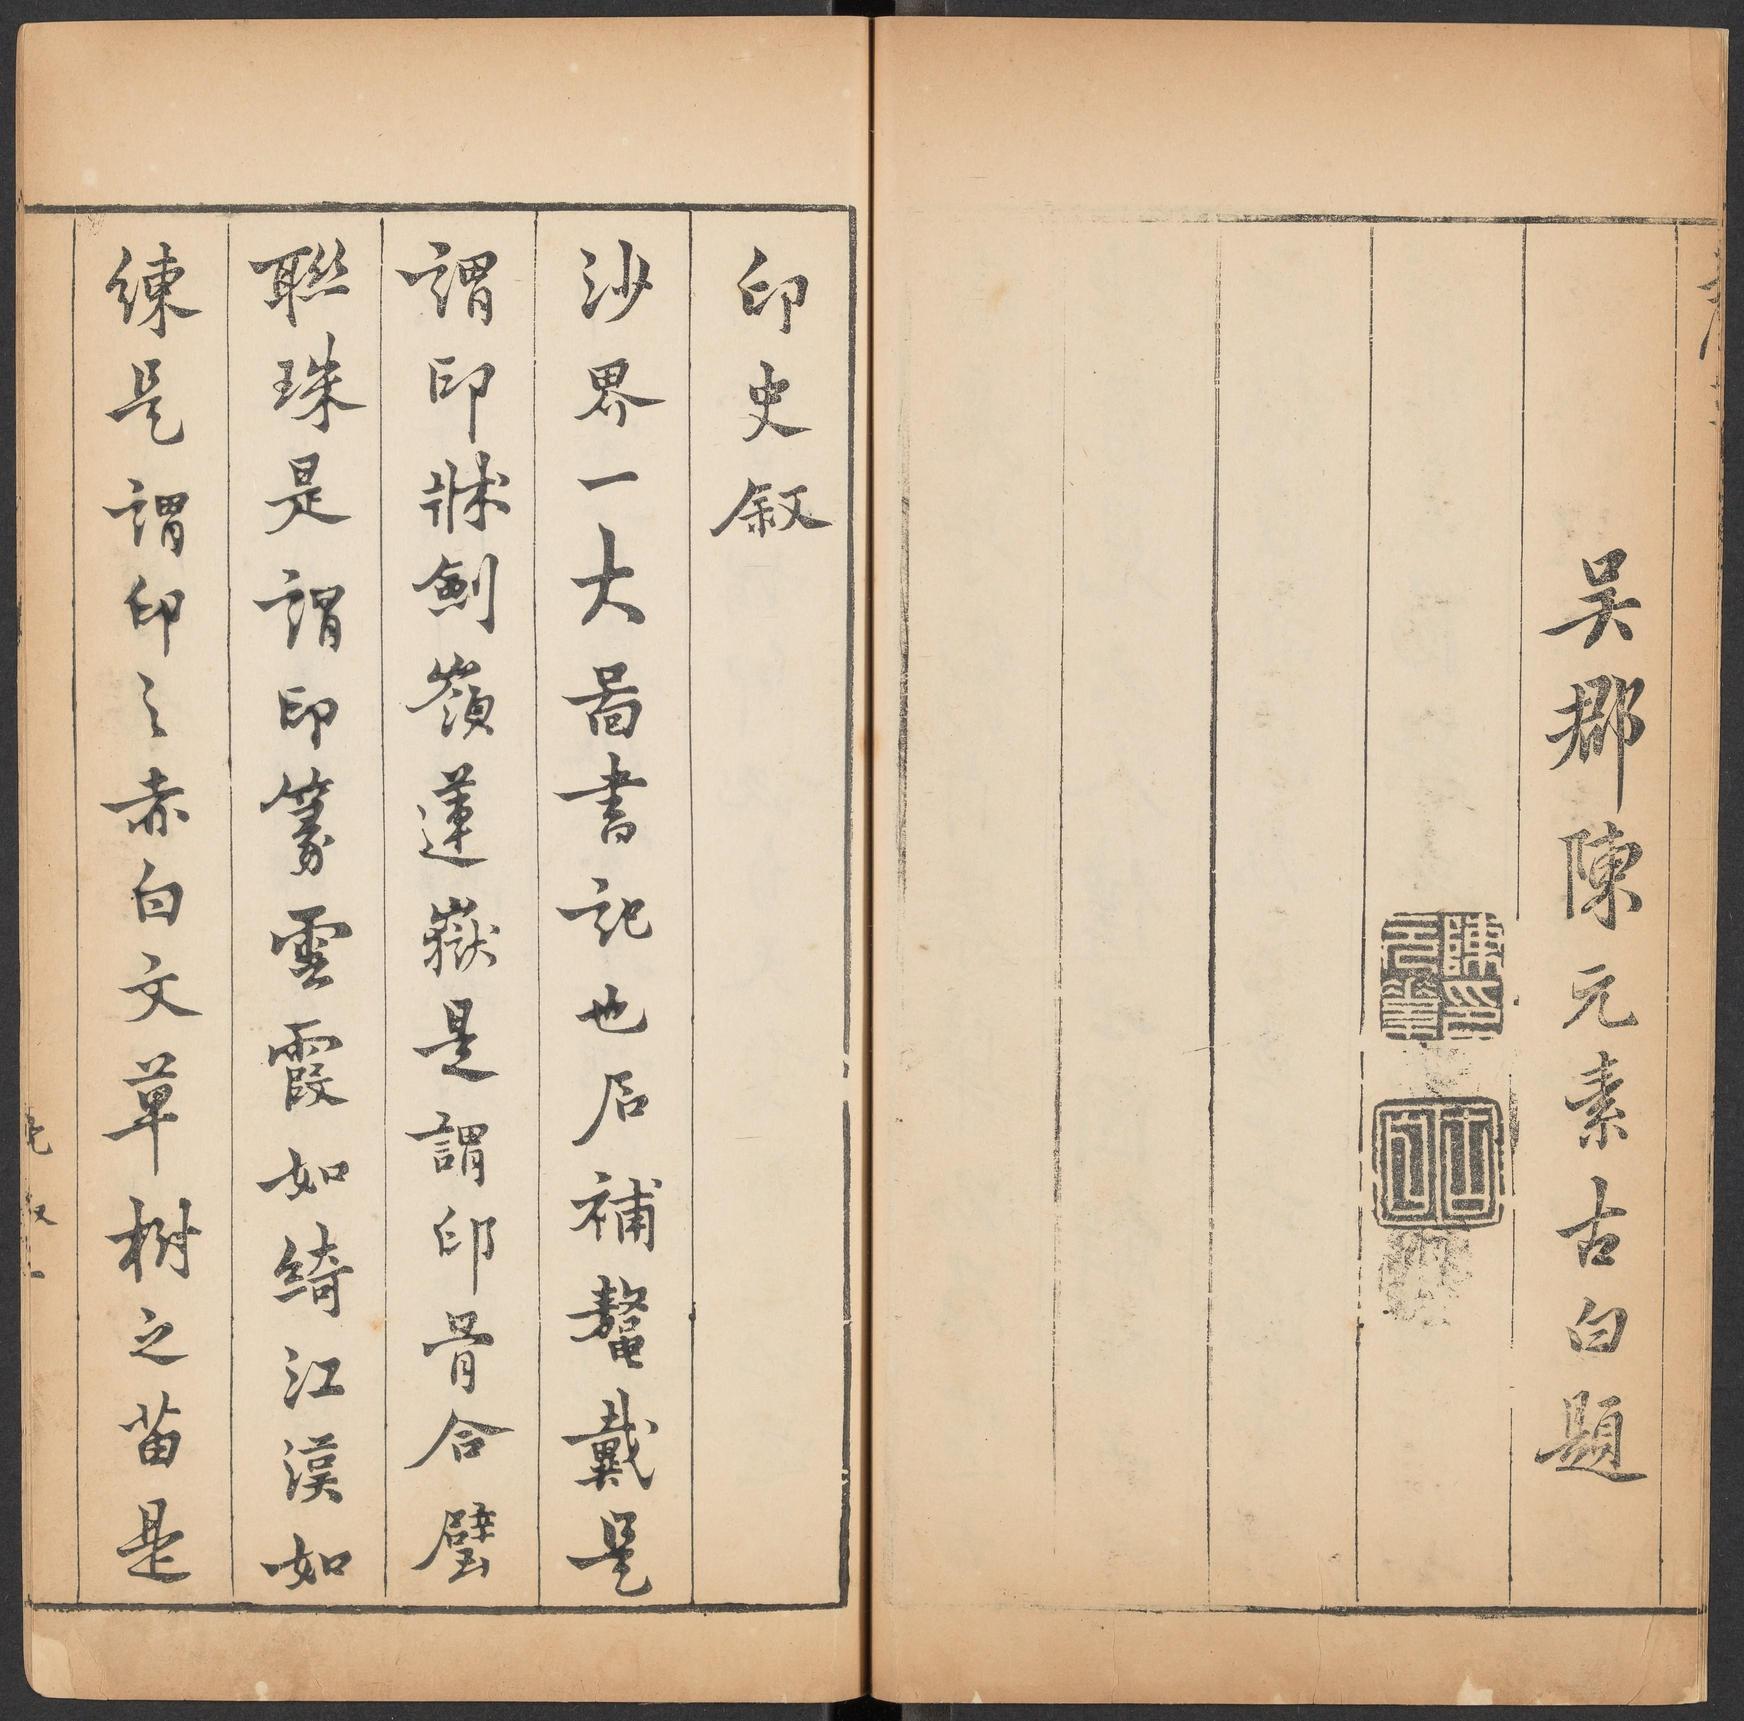 吴郡陳元素古白題
印史叙
沙界一大啚書記也后補鼇戴是
謂印牀劍嶺蓮嶽是謂印骨合璧
聯珠是謂印篆雲霞如綺江漢如
練是謂印之赤白文草樹之苗是